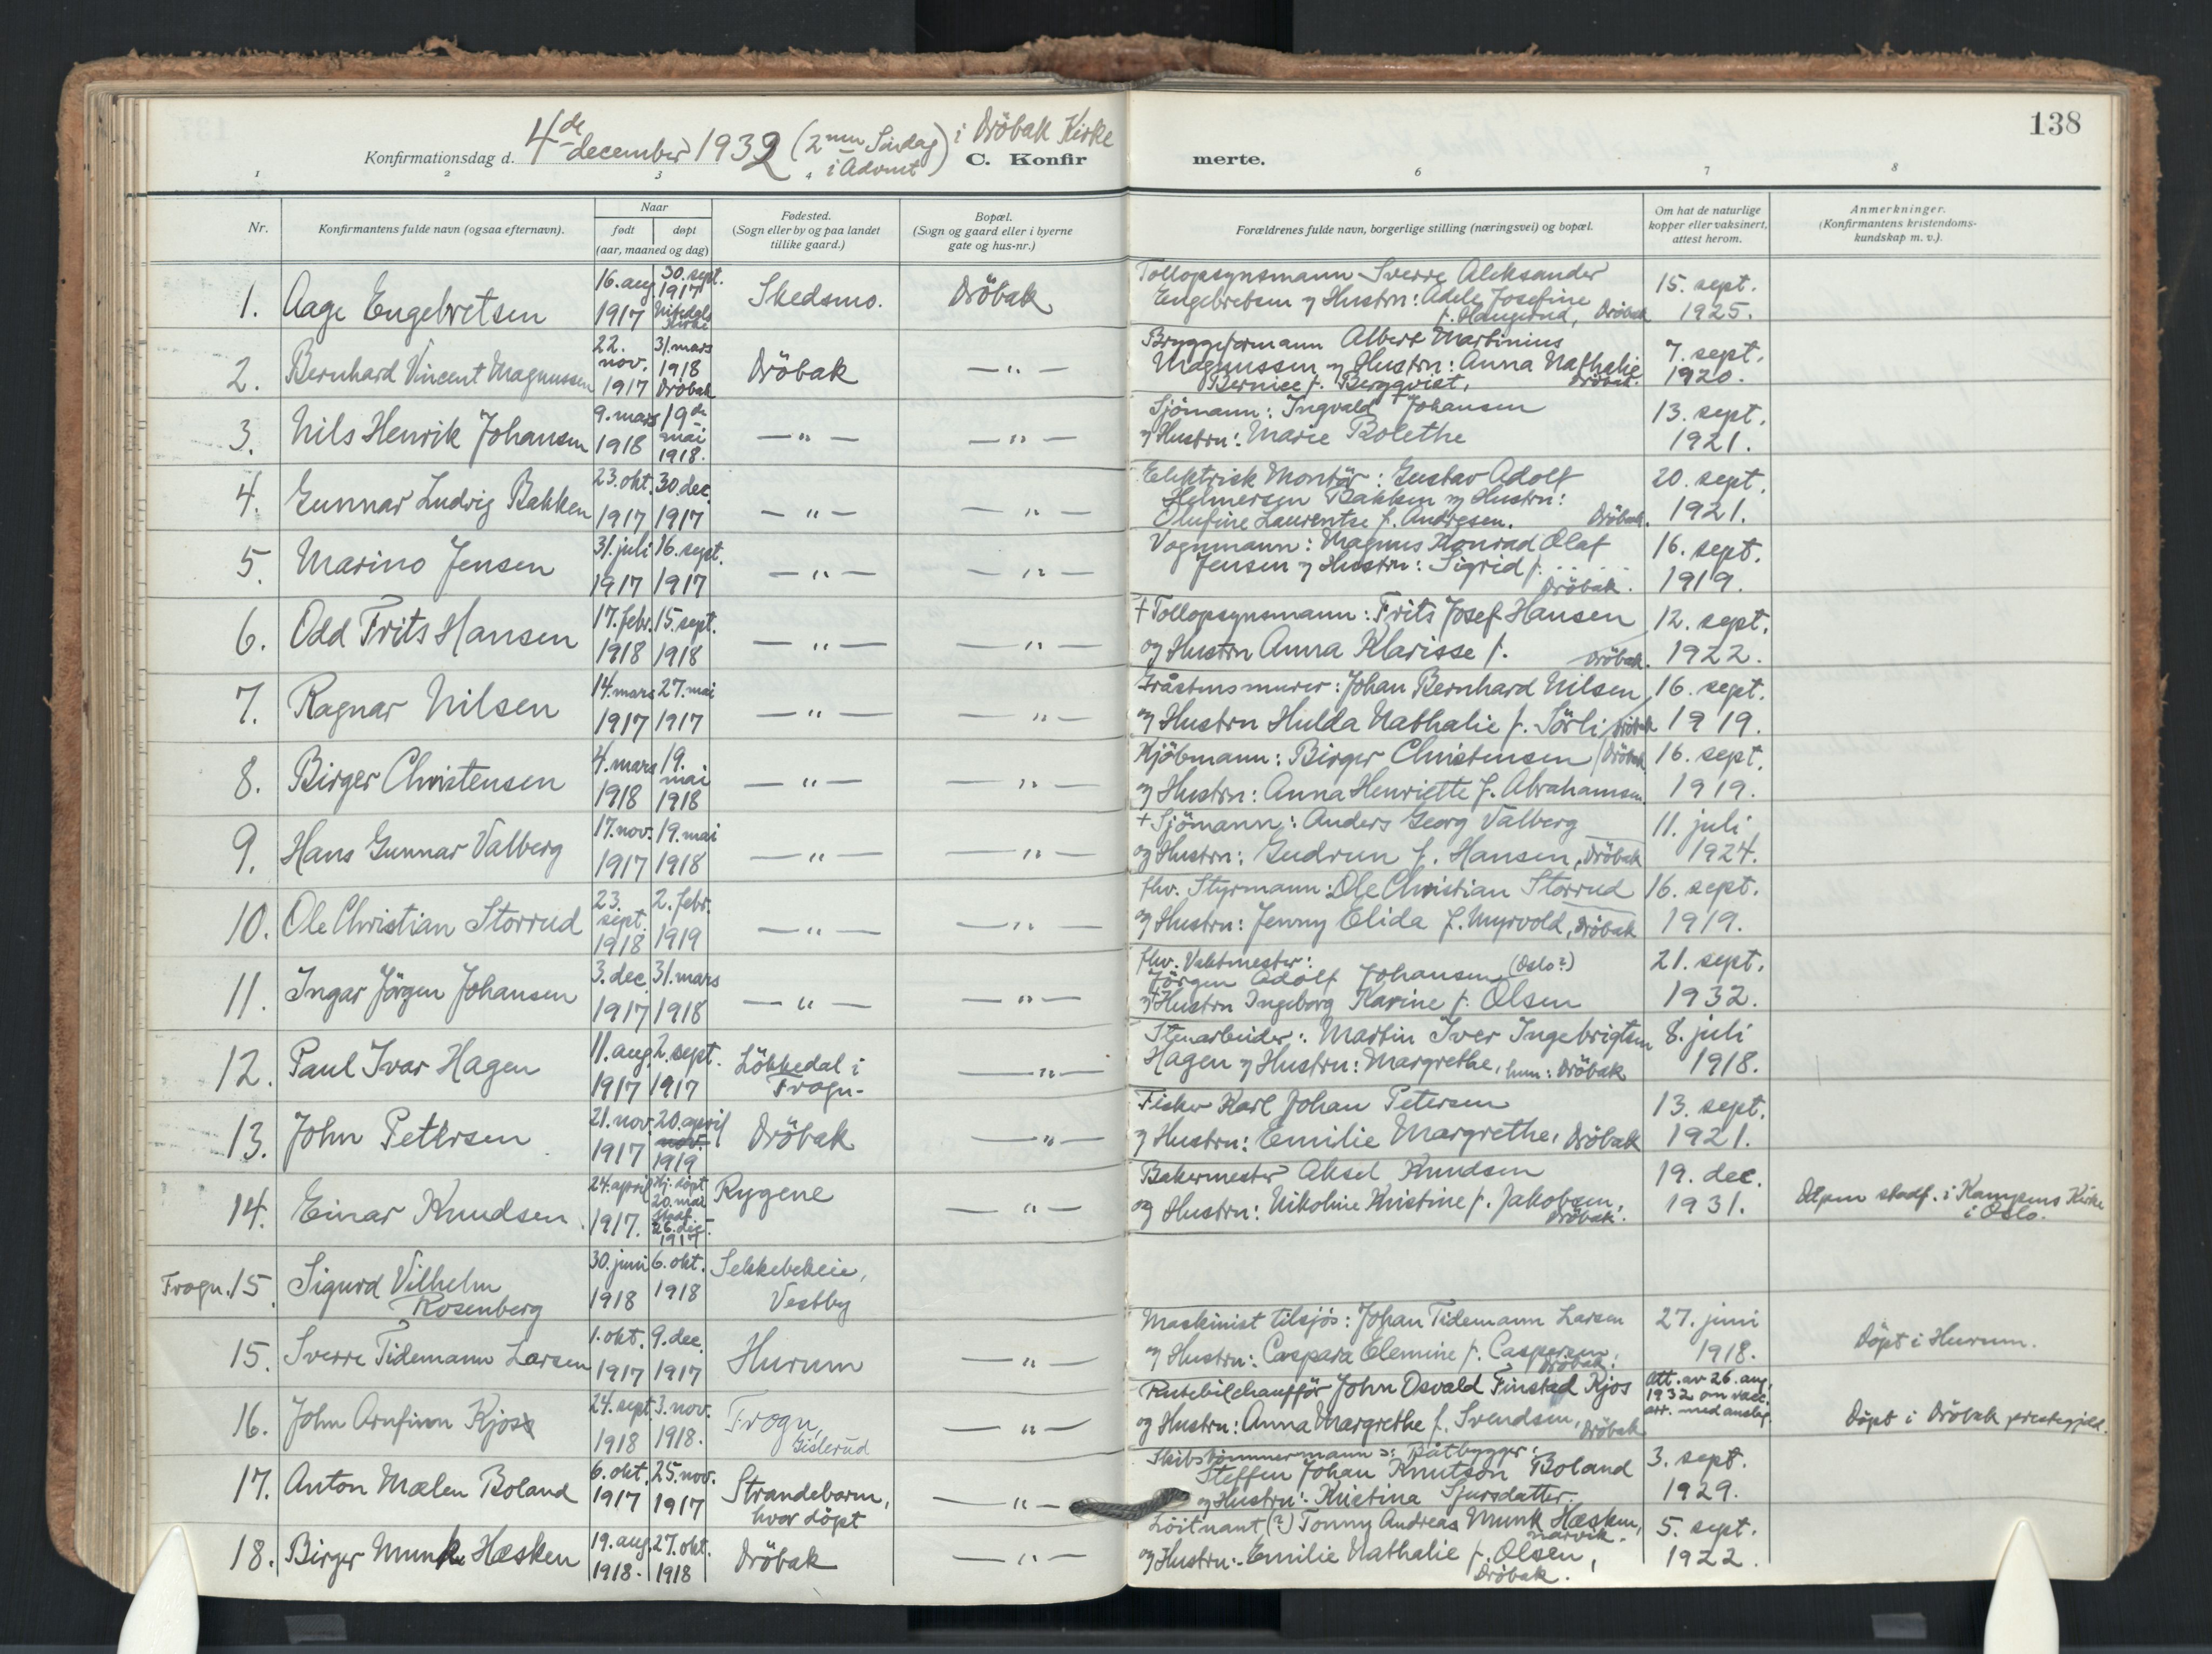 138
Konfirmationsdag d. 4de december 1932 (2nen Søndag i Advent) i Dröbak Kirke
C. Konfirmerte.
1 2 3 4 6 7 8
Nr. Konfirmantens fulde navn (ogsaa efternavn). Naar født døpt (aar, maaned og dag) Fødested. (Sogn eller by og paa landet tillike gaard.) Bopæl. (Sogn og gaard eller i byerne gate og hus-nr.) Forældrenes fulde navn, borgerlige stilling (næringsvei) og bopæl. Om hat de naturlige kopper eller vaksinert, attest herom. Anmerkninger. (Konfirmantens kristendoms-kundskap m. v.).
1. Aage Engebretsen 16. aug. 1917 30. sept. 1917 Nitedals Kirke Skedsmo. Dröbak Tollopsynsmann Sverre Aleksander Engebretsen og Hustru: Adele Josefine f. Haugerud, Dröbak 15. sept. 1925.
2. Bernhard Vincent Magnussen 22. nov. 1917 31. mars 1918 Dröbak Dröbak — " — Bryggeformann Albert Martinius Magnussen og Hustru: Anna Nathalie Bernice f. Bergqvist, Dröbak. 7. sept. 1920.
3. Nils Henrik Johansen 9. mars 1918 19de mai 1918. — " — — " — Sjömann: Ingvald Johansen og Hustru: Marie Bolethe 13. sept. 1921.
4. Gunnar Ludvig Bakken 23. okt. 1917 30. dec. 1917 — " — — " — Elektrisk Montör: Gustav Adolf Helmersen Bakken og Hustru: Olufine Laurentse f. Andresen. Dröbak. 20. sept. 1921.
5. Marino Jensen 31. juli 1917 16. sept. 1917 — " — — " — Vognmann: Magnus Konrad Olaf Jensen og Hustru: Sigrid f. . . . . Dröbak. 16. sept. 1919.
6. Odd Frits Hansen 17. febr. 1918 15. sept. 1918 — " — — " — + Tollopsynsmann: Frits Josef Hansen og Hustru Anna Klarisse f. Dröbak. 12. sept. 1922.
7. Ragnar Nilsen 14. mars 1917 27. mai 1917 — " — — " — Gråstensmurer: Johan Bernhard Nilsen og Hustru Hulda Nathalie f. Sörli, Dröbak 16. sept. 1919.
8. Birger Christensen 4. mars 1918 19. mai 1918 — " — — " — Kjöbmann: Birger Christensen Dröbak og Hustru: Anna Henriette f. Abrahamsen 16. sept. 1919.
9. Hans Gunnar Valberg 17. nov. 1917 19. mai 1918 — " — — " — + Sjömann: Anders Georg Valberg og Hustru: Gudrun f. Hansen, Dröbak 11. juli 1924.
10. Ole Christian Storrud 23. sept. 1918 2. febr. 1919 — " — — " — fhv. Styrmann: Ole Christian Storrud og Hustru: Jenny Elida f. Myrvold, Dröbak 16. sept. 1919.
11. Ingar Jörgen Johansen 3. dec. 1917 31. mars 1918 — " — — " — fhv. Vaktmester: Jörgen Adolf Johansen (Oslo?) og + Hustru Ingeborg Karine f. Olsen 21. sept. 1932.
12. Paul Ivar Hagen 11. aug. 1917 2. sept. 1917 Lökkedal i Frogn. — " — Stenarbeider: Martin Iver Ingebrigtsen Hagen og Hustru: Margrethe, hun: Dröbak 8. juli 1918.
13. John Petersen 21. nov. 1917 20. april nov. 1919 Dröbak — " — Fisker Karl Johan Petersen og Hustru: Emilie Margrethe, Dröbak 13. sept. 1921.
14. Einar Knudsen 24. april 1917. Hj. döpt 20. mai Stadf. 26. dec. 1917 Rygene — " — Bakermester Aksel Knudsen og Hustru: Nikoline Kristine f. Jakobsen, Dröbak. 19. dec. 1931. Dåpen stadf. i Kampens Kirke i Oslo.
Frogn. 15. Sigurd Vilhelm Rosenberg 30. juni 1918 6. okt. 1918 Sekkebekeie, Vestby
15. Sverre Tidemann Larsen 1. okt. 1917 9. dec. 1917 Hurum — " — Maskinist tilsjös: Johan Tidemann Larsen og Hustru: Caspara Elemine f. Caspersen, Dröbak. 27. juni 1918. Döpt i Hurum.
16. John Arnfinn Kjos 24. sept. 1918 3. nov. 1918. Frogn, Gislerud — " — Rutebilchaufför John Osvald Finstad Kjos og Hustru: Anna Margrethe f. Svendsen, Dröbak Att. av 26. aug. 1932 om vacc. arr. med anslag. Döpt i Dröbak prestegjeld.
17. Anton Mælen Boland 6. okt. 1917 25. nov. 1917 Strandebarm, hvor döpt — " — Skibstömmermann ɔ: Båtbygger: Steffen Johan Knutson Boland og Hustru: Kristina Sjursdatter. 3. sept. 1929.
18. Birger Munk Hæsken 19. aug. 1918. 27. okt. 1918 Dröbak — " — Löitnant (?) Tonny Andreas Munk Hæsken, Narvik. og Hustru: Emilie Nathalie f. Olsen, Dröbak. 5. sept. 1922.